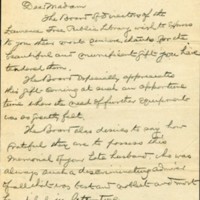 Dear Madam:
The Board of Directors of the
Lawrence Free Public Library wish to express
to you their most sincere thanks for the
beautiful and munificent gift you have
tendered them.
The Board especially appreciates
this gift coming at such an opportune
time when the need of further equipment
was so greatly felt.
The Board also desires to say how
grateful they are to possess this
Memorial of your late husband who was
always such a discriminating admirer
of all that was best and most